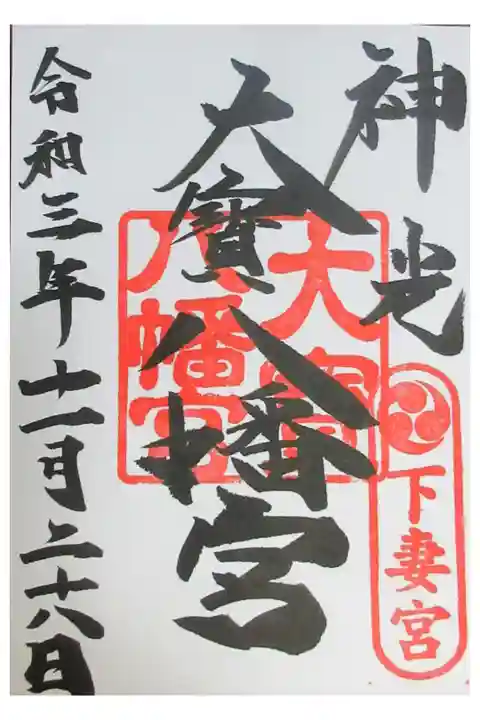 神光
下妻宮
大寶八幡宮
大寶
八幡宮
令和三年十一月二十八日